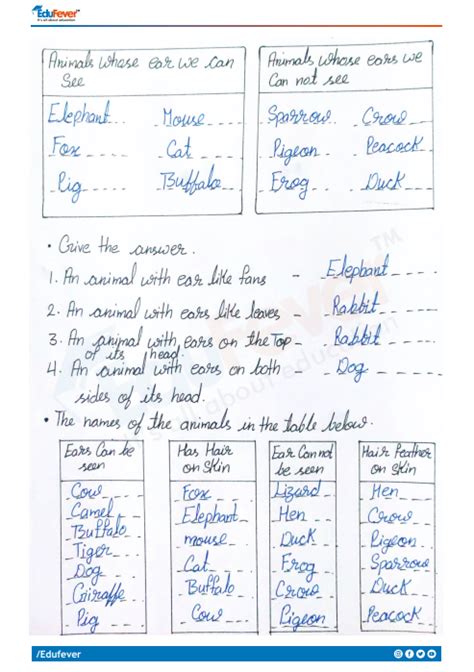 EduFever
It's all about education
Animals whose ear we can
See
Elephant Mouse
Fox Cat
Pig Buffalo
Animals whose ears we
Can not see
Sparrow Crow
Pigeon Peacock
Frog Duck
• Give the answer.
1. An animal with ear like fans - Elephant
2. An animal with ears like leaves - Rabbit
3. An animal with ears on the Top - Rabbit
of its head.
4. An animal with ears on both - Dog
sides of its head.
• The names of the animals in the table below.
Ears Can be
seen
Cow
Camel
Buffalo
Tiger
Dog
Giraffe
Pig
Has Hair
on Skin
Fox
Elephant
mouse
Cat
Buffalo
Cow
Ear Can not
be seen
Lizard
Hen
Duck
Frog
Crow
Pigeon
Hair Feather
on Skin
Hen
Crow
Pigeon
Sparrow
Duck
Peacock
EduFever TM
It's all about education
/Edufever